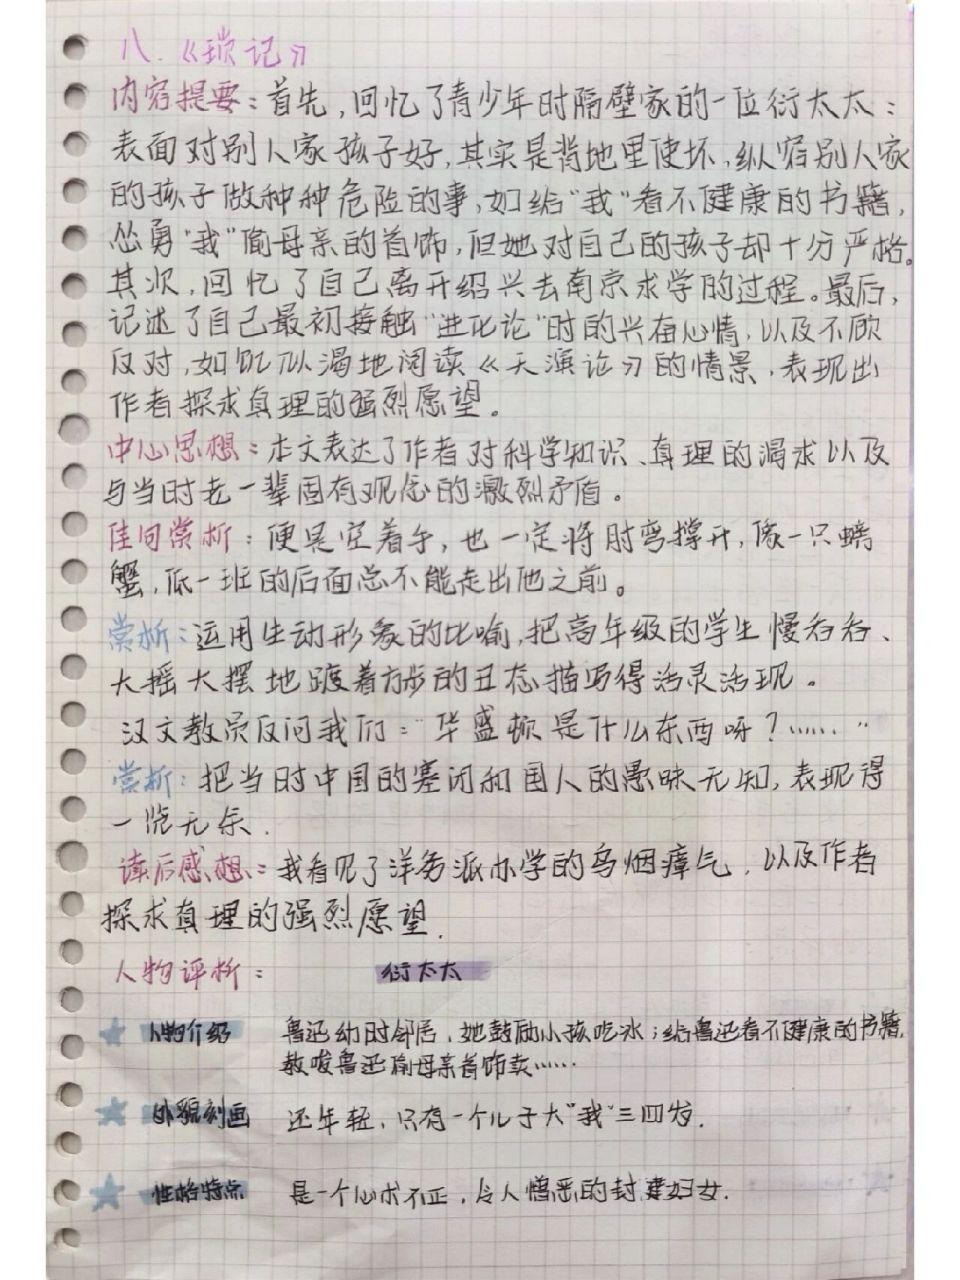 八.《琐记》
内容提要：首先,回忆了青少年时隔壁家的一位衍太太：
表面对别人家孩子好,其实是背地里使坏,纵容别人家
的孩子做种种危险的事,如给"我"看不健康的书籍,
怂勇"我"偷母亲的首饰,但她对自己的孩子却十分严格。
其次,回忆了自己离开绍兴去南京求学的过程。最后,
记述了自己最初接触"进化论"时的兴奋心情,以及不顾
反对,如饥似渴地阅读《天演论》的情景,表现出
作者探求真理的强烈愿望。
中心思想：本文表达了作者对科学知识、真理的渴求以及
与当时老一辈固有观念的激烈矛盾。
佳句赏析：便是空着手,也一定将肘弯撑开,像一只螃
蟹,低一班的后面总不能走出他之前。
赏析：运用生动形象的比喻,把高年级的学生慢吞吞、
大摇大摆地踱着方步的丑态描写得活灵活现。
汉文教员反问我们："华盛顿是什么东西呀？……"
赏析：把当时中国的塞闭和国人的愚昧无知,表现得
一览无余.
读后感想：我看见了洋务派办学的乌烟瘴气,以及作者
探求真理的强烈愿望.
人物评析： 衍太太
人物介绍 鲁迅幼时邻居,她鼓励小孩吃冰；给鲁迅看不健康的书籍,
教唆鲁迅偷母亲首饰卖……
外貌刻画 还年轻,只有一个儿子大"我"三四岁.
性格特点 是一个心术不正,令人憎恶的封建妇女.